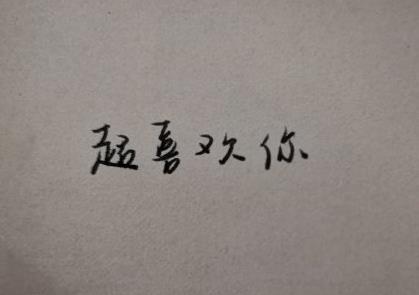 超喜欢你